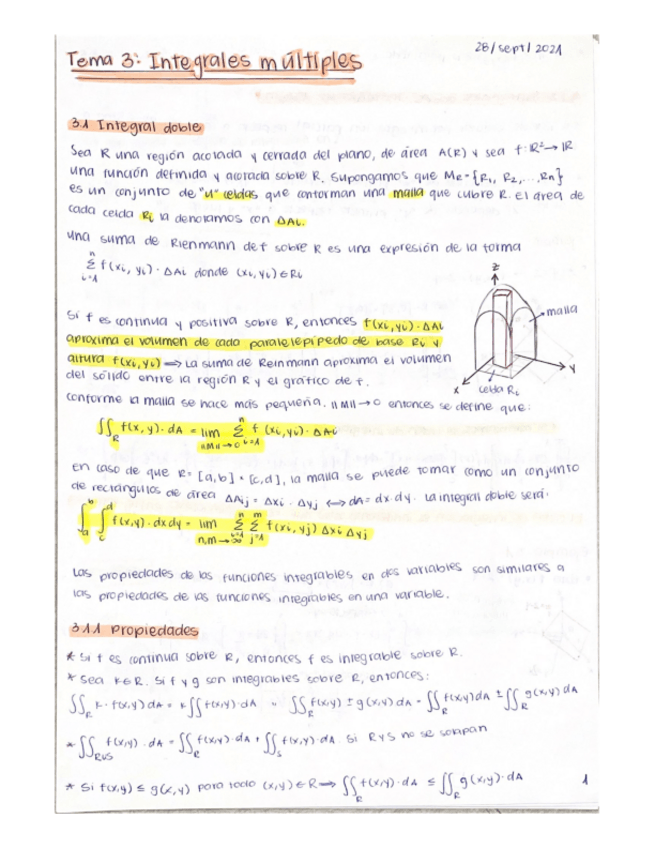 28/sept/2021
Tema 3: Integrales múltiples
3.1 Integral doble
Sea R una región acotada y cerrada del plano, de área A(R) y sea f: ℝ² → ℝ
una función definida y acotada sobre R. Supongamos que M_R = {R₁, R₂, ..., Rn}
es un conjunto de "n" celdas, que conforman una malla que cubre R. El área de
cada celda Ri la denotamos con ΔAi.
Una suma de Rienmann de f sobre R es una expresión de la forma
∑_{i=1}^{n} f(xi, yi) · ΔAi donde (xi, yi) ∈ Ri
Si f es continua y positiva sobre R, entonces f(xi, yi) · ΔAi
aproxima el volumen de cada paralelepípedo de base Ri y
altura f(xi, yi) ⟶ La suma de Reinmann aproxima el volumen
del sólido entre la región R y el gráfico de f.
z
malla
y
x
celda Ri
conforme la malla se hace más pequeña. ||M|| → 0 entonces se define que:
∬_R f(x, y) · dA = lim_{||M||→0} ∑_{i=1}^{n} f(xi, yi) · ΔAi
en caso de que R = [a,b] × [c,d], la malla se puede tomar como un conjunto
de rectángulos de área ΔAij = Δxi · Δyj ⟷ dA = dx dy. La integral doble será:
∫_a^b ∫_c^d f(x,y) · dx dy = lim_{n,m→∞} ∑_{i=1}^{n} ∑_{j=1}^{m} f(xi, yj) Δxi Δyj
Las propiedades de las funciones integrables en dos variables son similares a
las propiedades de las funciones integrables en una variable.
3.1.1 Propiedades
* Si f es continua sobre R, entonces f es integrable sobre R.
* Sea k ∈ R. Si f y g son integrables sobre R, entonces:
∬_R k · f(x,y) dA = k ∬ f(x,y) · dA " ∬_R f(x,y) ± g(x,y) dA = ∬_R f(x,y) dA ± ∬_R g(x,y) dA
* ∬_{RUS} f(x,y) · dA = ∬_R f(x,y) · dA + ∬_S f(x,y) · dA. Si R y S no se solapan
* Si f(x,y) ≤ g(x,y) para todo (x,y) ∈ R ⟶ ∬_R f(x,y) · dA ≤ ∬_R g(x,y) · dA
1